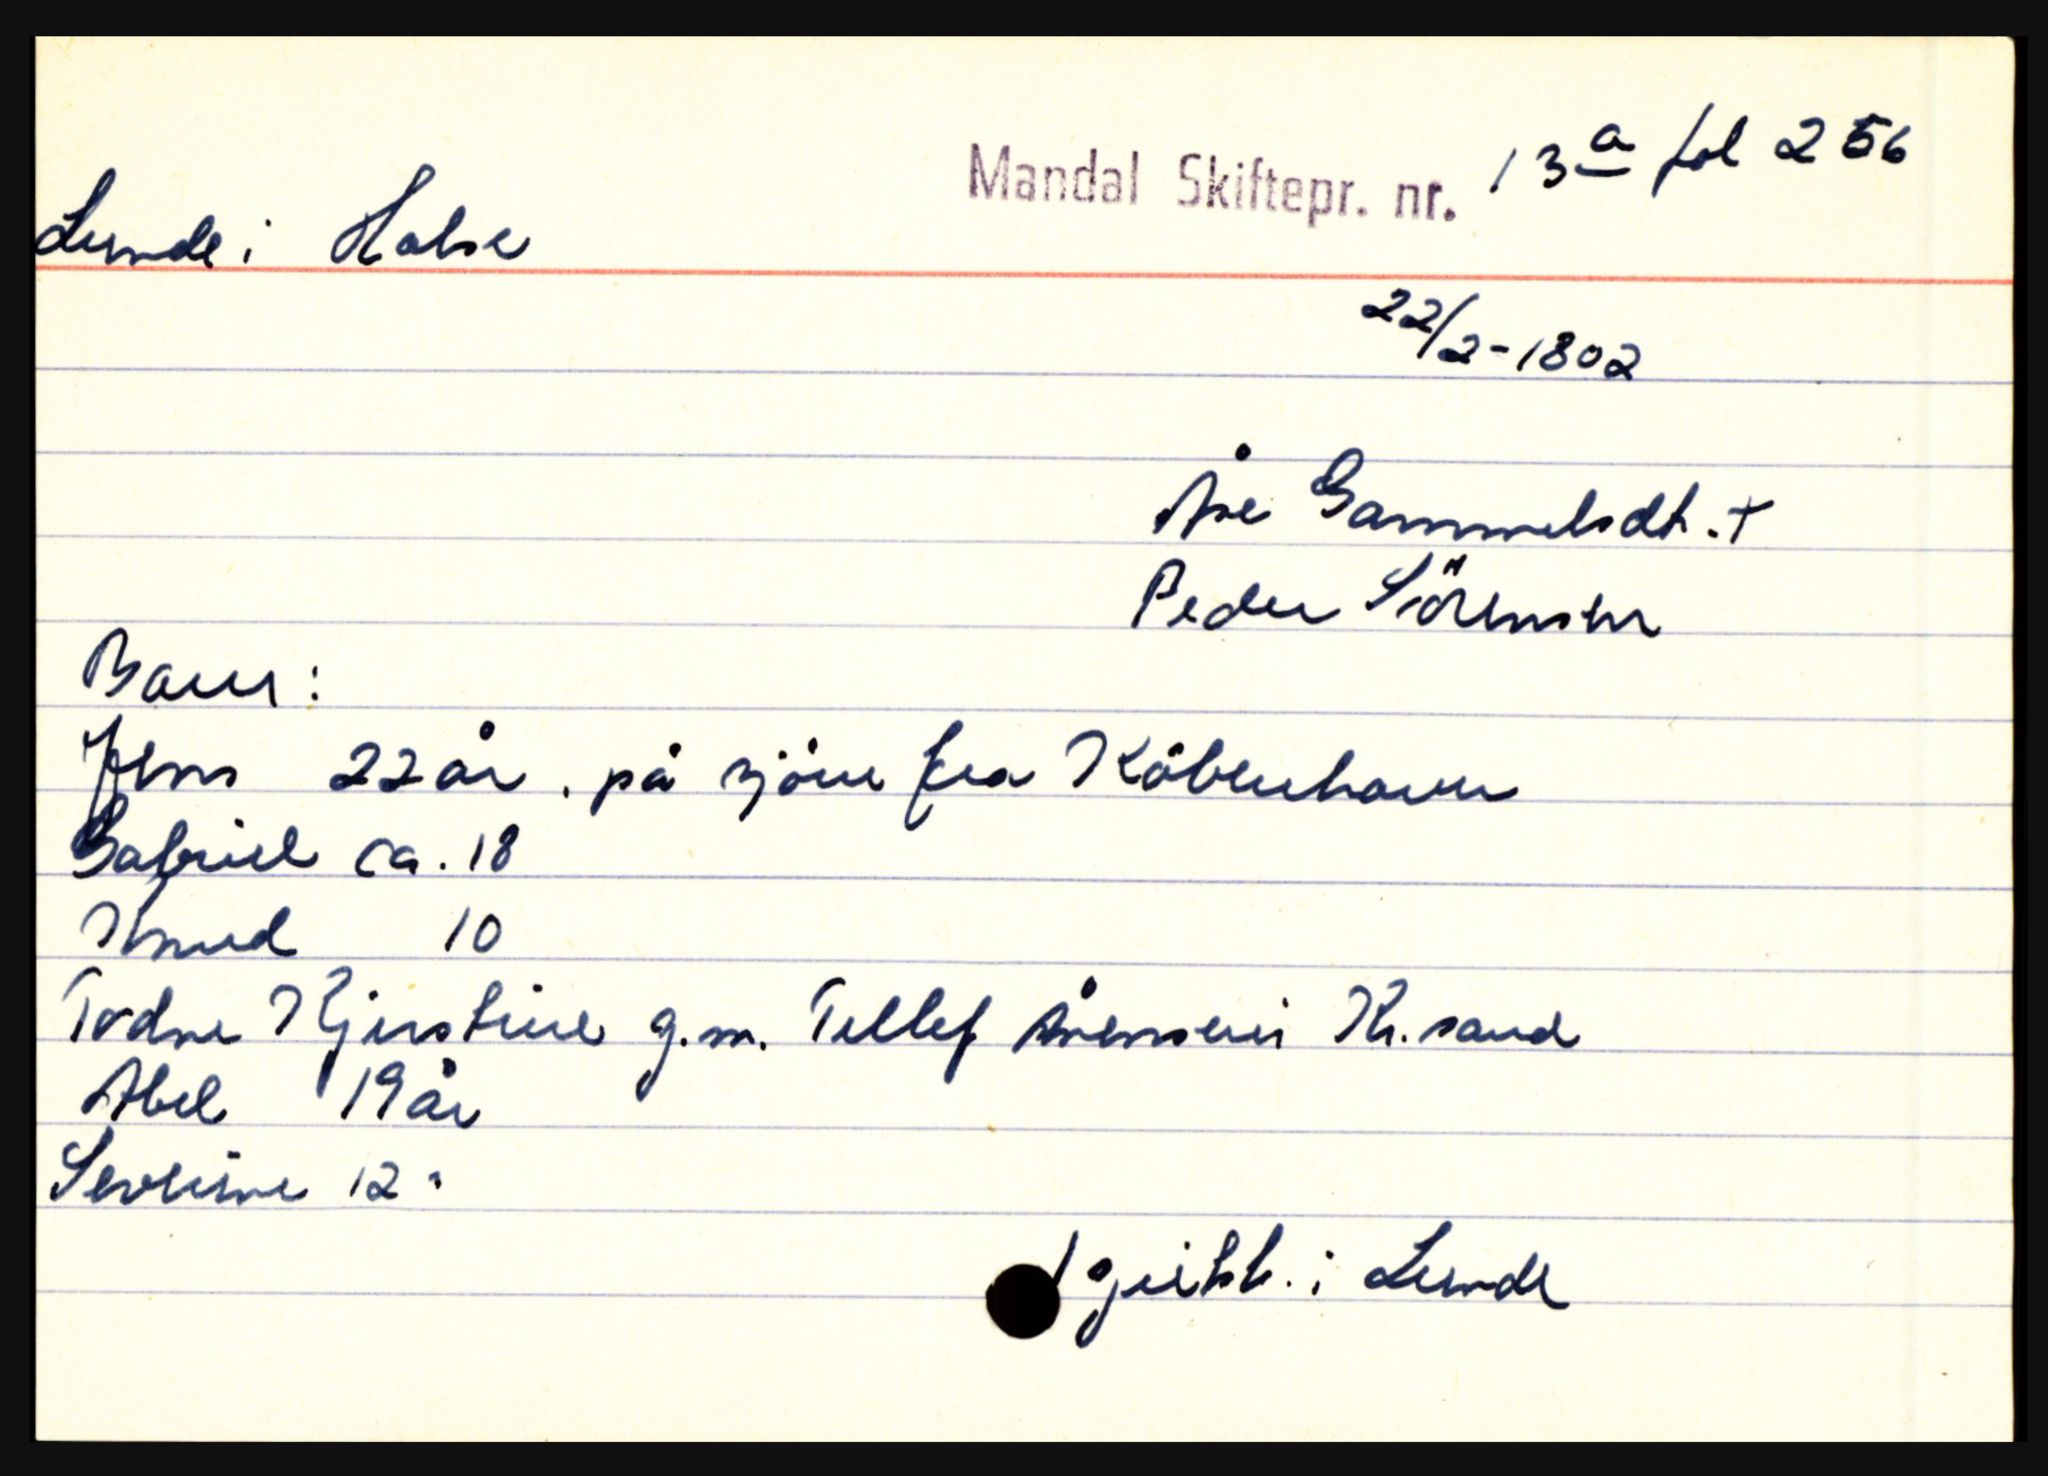 Mandal Skiftepr. nr. 13a fol 256
Lunde i Halse
22/2-1802
Åse Gammelsdt. +
Peder Sörensen
Barn:
Jens 22 år. på sjöen fra Köbenhavn
Gabriel ca. 18
Knud 10
Todne Kjerstine g.m. Tellef Arensen i Kr.sand
Abel 19 år
Severine 12 "
1 gerikk. i Lunde